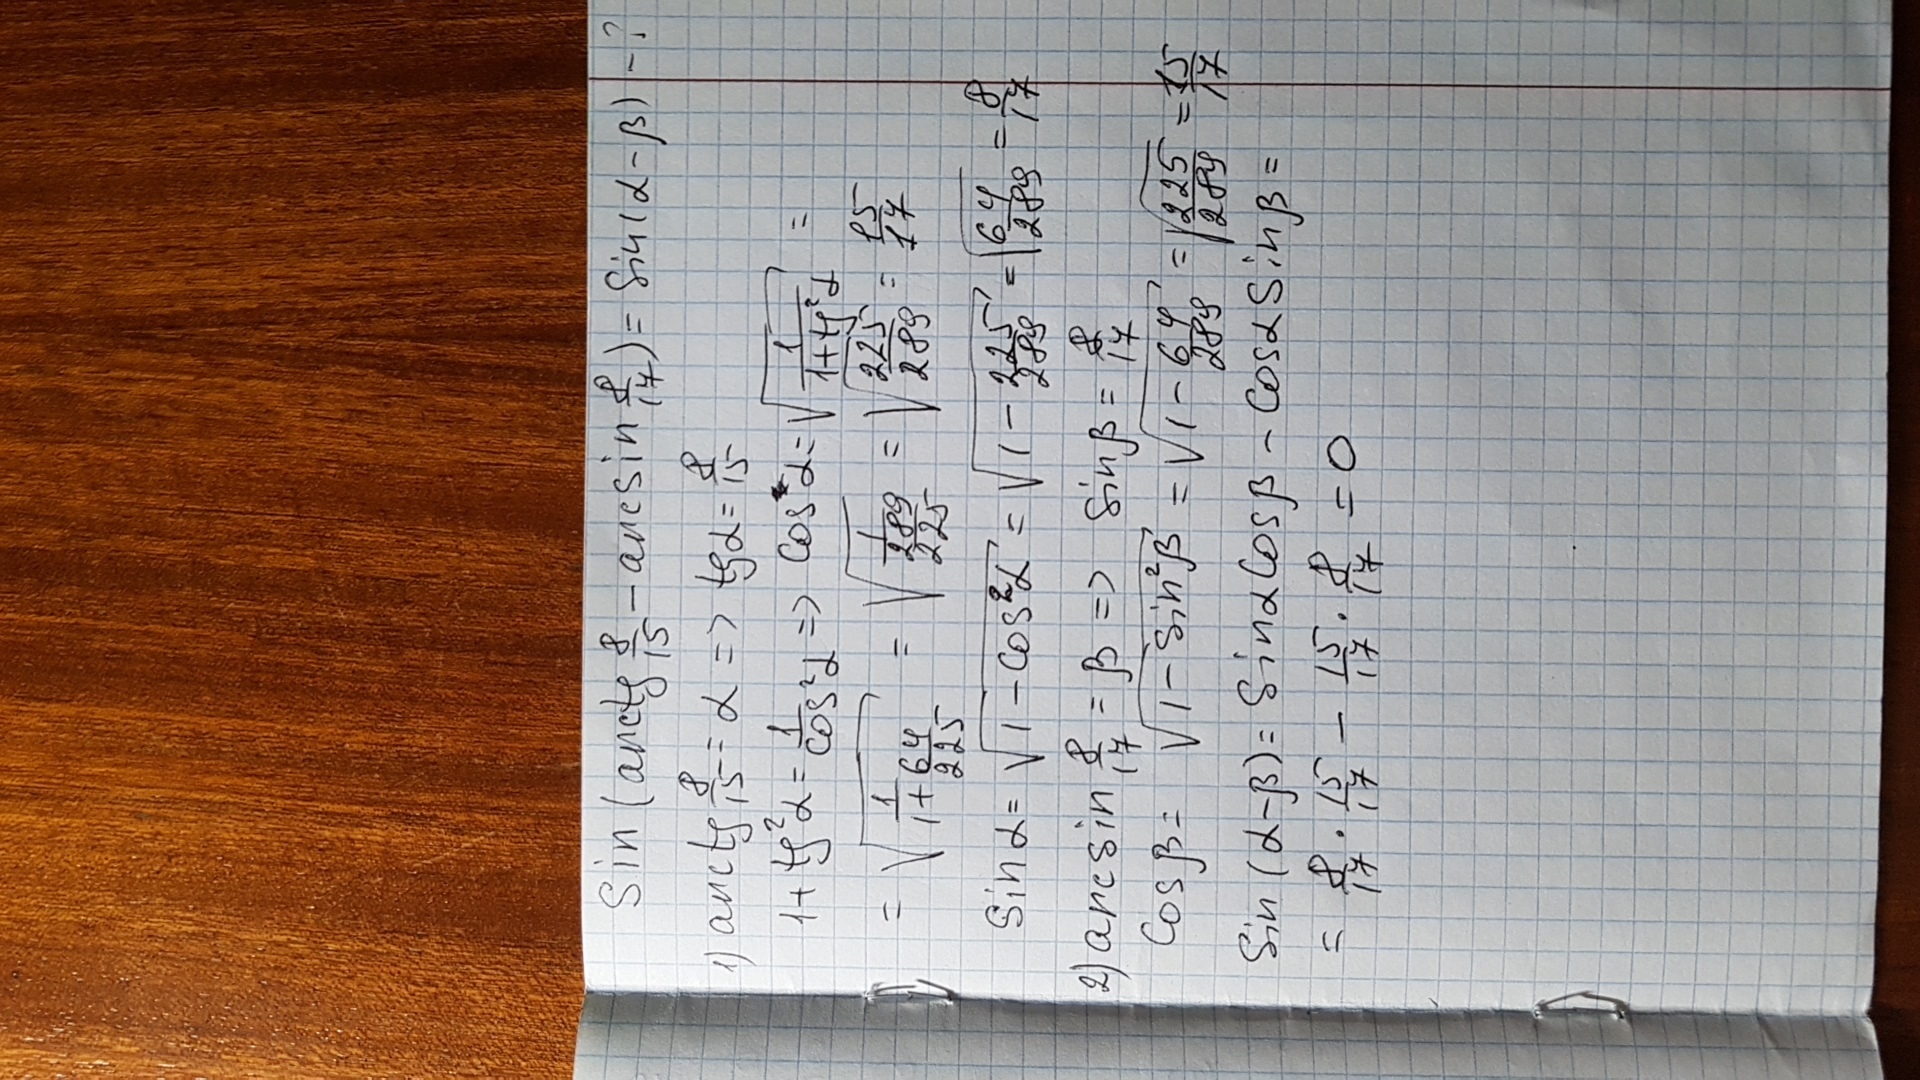 Sin(arctg 8/15 - arcsin 8/17) = Sin(α-β) - ?
1) arctg 8/15 = α => tgα = 8/15
1+tg²α = 1/cos²α => cosα = √(1/(1+tg²α)) =
= √(1/(1+64/225)) = √(1/(289/225)) = √(225/289) = 15/17
Sinα = √(1-cos²α) = √(1-225/289) = √(64/289) = 8/17
2) arcsin 8/17 = β => Sinβ = 8/17
Cosβ = √(1-Sin²β) = √(1-64/289) = √(225/289) = 15/17
Sin(α-β) = SinαCosβ - CosαSinβ =
= 8/17 · 15/17 - 15/17 · 8/17 = 0